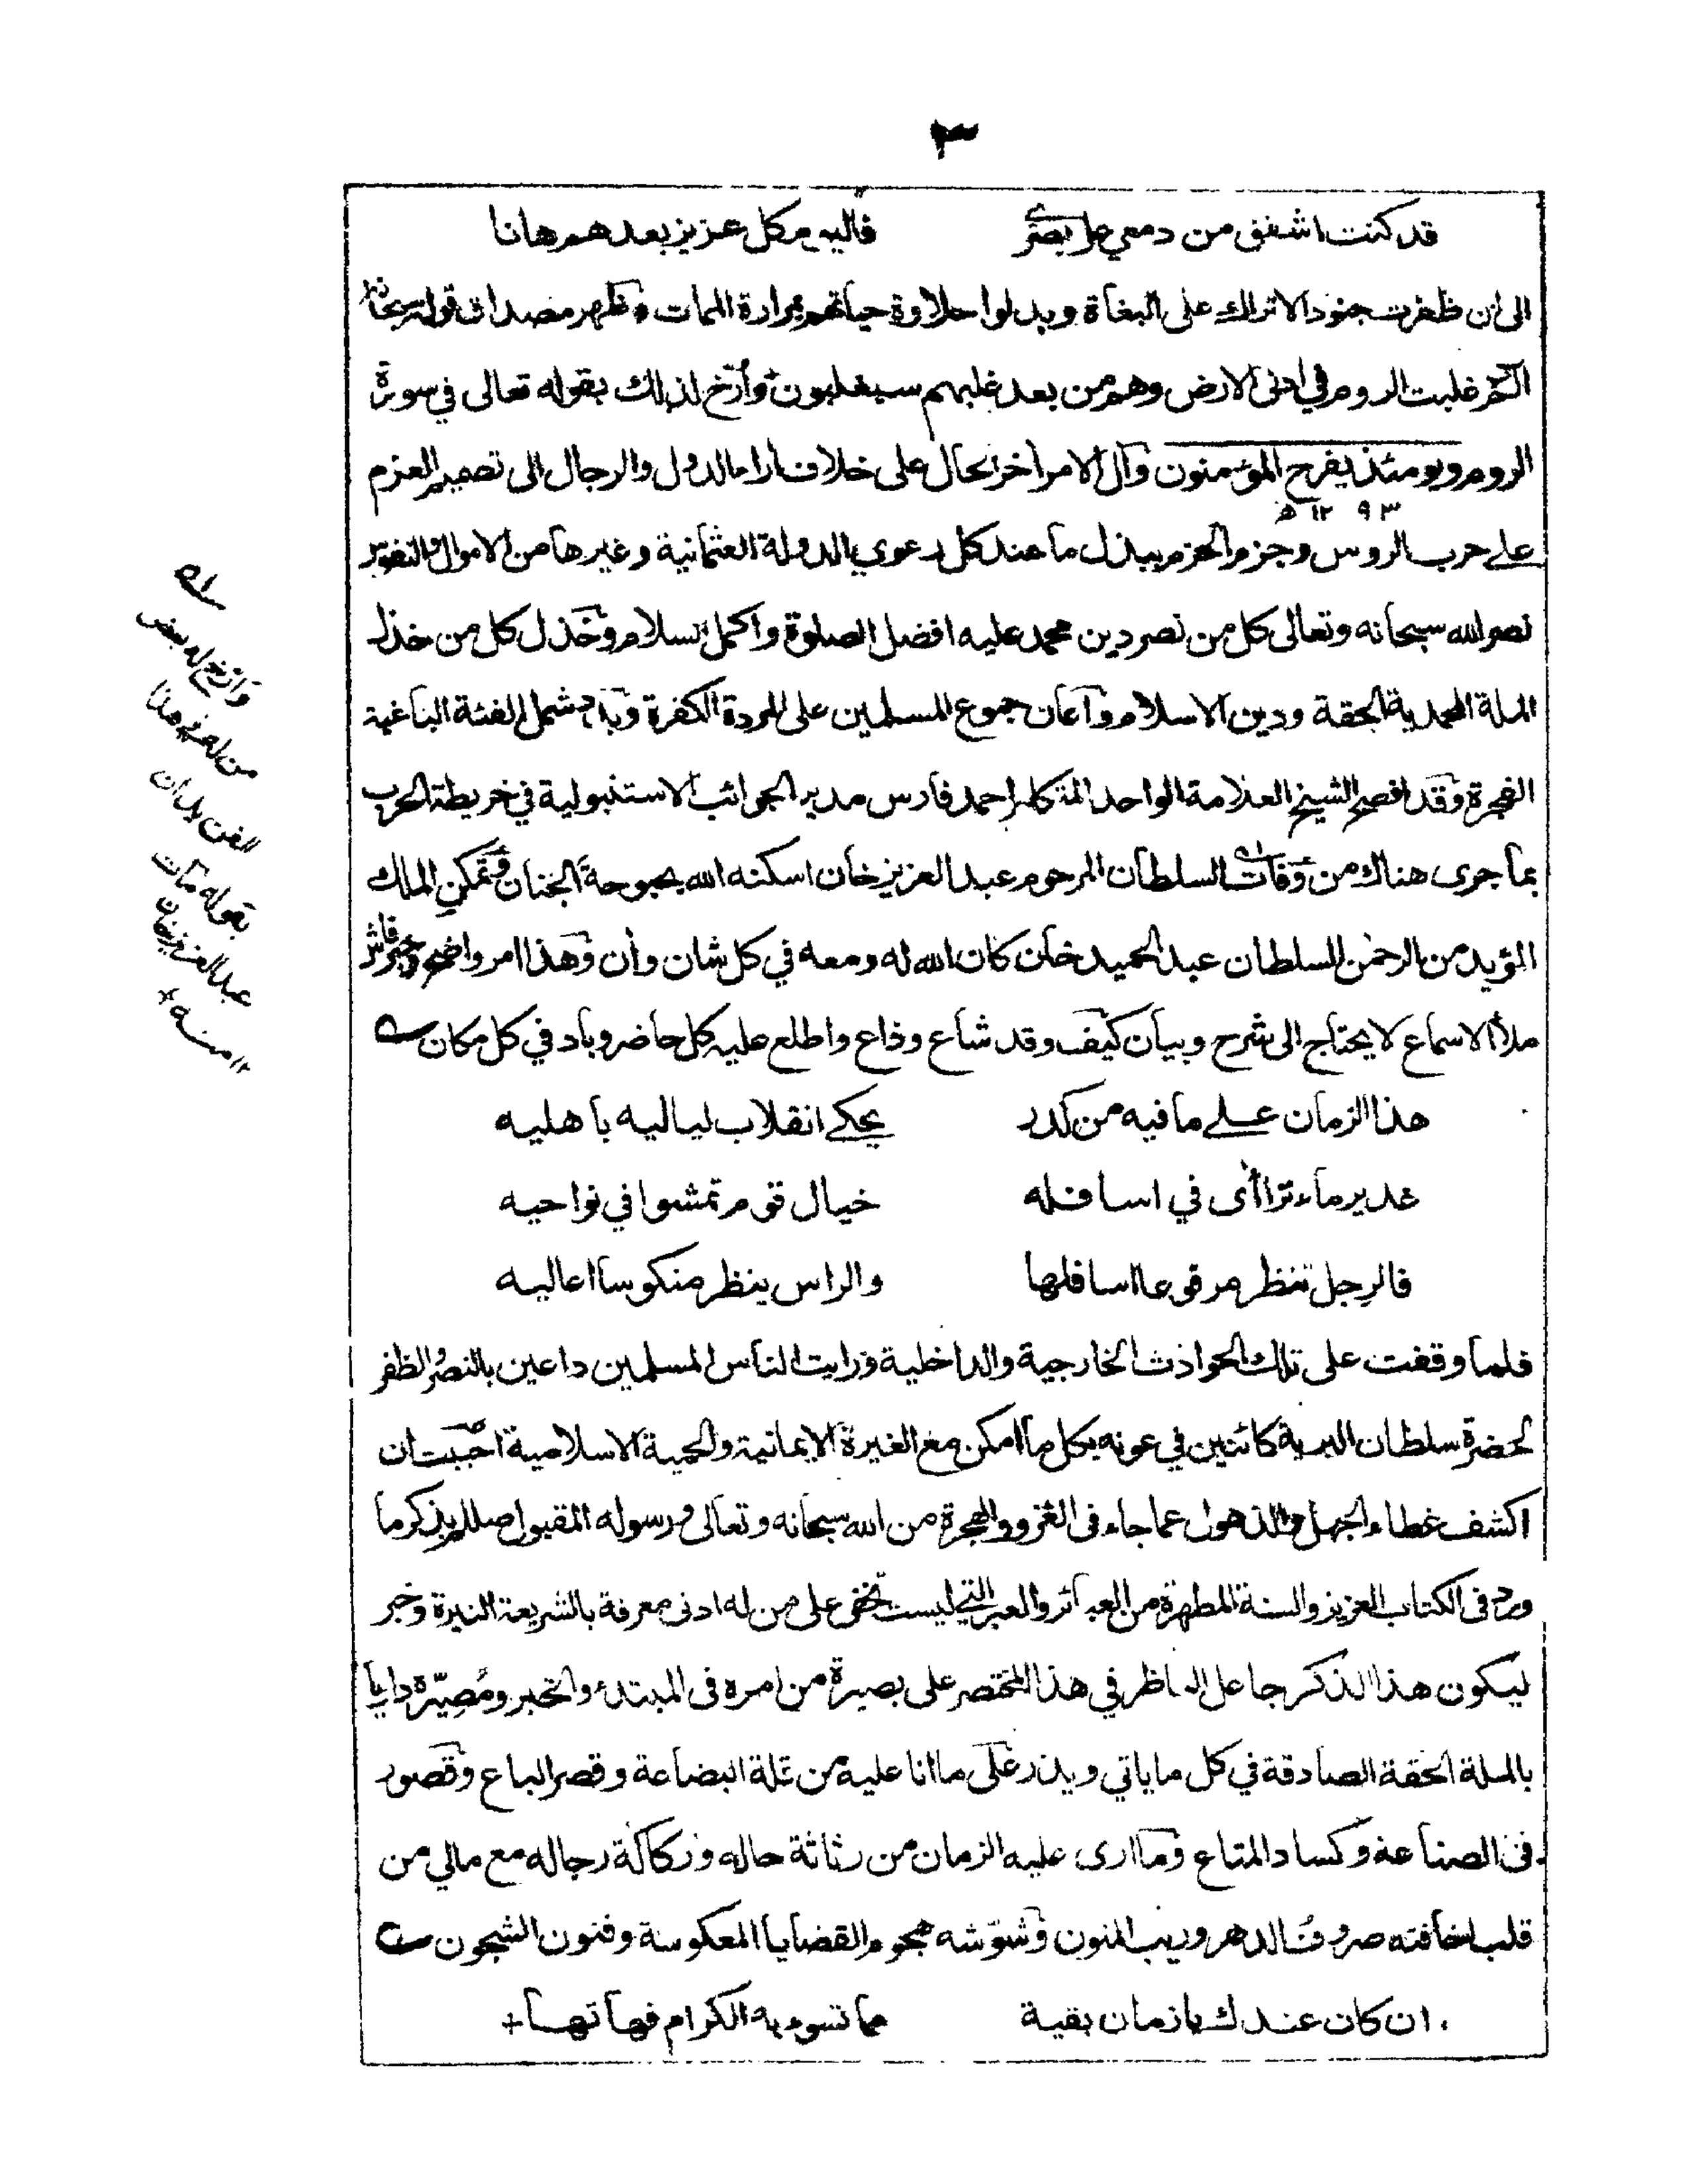 ٣
قد كنت اشفق من دمعي على بصري فاليوم كل عزيز بعدهم هانا
الى ان ظفرت جنود الاتراك على البغاة وبدلوا حلاوة حياتهم بمرارة الممات وظهر مصداق قوله سبحانه
الٓمّ غلبت الروم في ادنى الارض وهم من بعد غلبهم سيغلبون وأرّخ لذلك بقوله تعالى في سورة
الروم ويومئذ يفرح المؤمنون وآل الامر اخر الحال على خلاف اراء الدول والرجال الى تصميم العزم
١٢٩٣ ھ
على حرب الروس وجزم الحزم ببذل ما عند كل دعوي بالدولة العثمانية وغيرها من الاموال والنفوس
نصر الله سبحانه وتعالى كل من نصر دين محمد عليه افضل الصلوة واكمل السلام وخذل كل من خذل
الملة المحمدية الحقة ودين الاسلام وأعان جموع المسلمين على المردة الكفرة وبدد شمل الفئة الباغية
الفجرة وقد افصح الشيخ العلامة الواحد المتكلم احمد فارس مدير الجوائب الاستنبولية في خريطة الحرب
بما جرى هناك من وفات السلطان المرحوم عبد العزيز خان اسكنه الله بحبوحة الجنان وتمكن الملك
المؤيد من الرحمن السلطان عبد الحميد خان كان الله له ومعه في كل شان وأن وهذا امر واضح وخبر فاش
ملأ الاسماع لا يحتاج الى شرح وبيان كيف وقد شاع وذاع واطلع عليه كل حاضر وباد في كل مكان
هذا الزمان على ما فيه من كدر يحكي انقلاب لياليه باهليه
غدير ماء تراأى في اسافله خيال قوم تمشوا في نواحيه
فالرجل تنظر مرفوعا اسافلها والراس ينظر منكوسا اعاليه
فلما وقفت على تلك الحوادث الخارجية والداخلية ورايت الناس المسلمين داعين بالنصر والظفر
لحضرة سلطان البرية كائنين في عونه بكل ما امكن مع الغيرة الايمانية والحمية الاسلامية احببت ان
اكشف غطاء الجهل والذهول عما جاء فى الغزو والهجرة من الله سبحانه وتعالى ورسوله المقبول صللم بذكر ما
ورد فى الكتاب العزيز والسنة المطهرة من البصائر والعبر التي ليست تخفى على من له ادنى معرفة بالشريعة النيرة وخبر
ليكون هذا الذكر جاعل الناظر في هذا المختصر على بصيرة من امره فى المبتدء والخبر ومُصيّره دايبا
بالملة الحقة الصادقة في كل ما ياتي ويذر على ما انا عليه من قلة البضاعة وقصر الباع وقصور
فى الصناعة وكساد المتاع وما ارى عليه الزمان من رثاثة حاله وركاكة رجاله مع مالي من
قلب اخافته صروف الدهر وريب المنون وشوّشه هجوم القضايا المعكوسة وفنون الشجون
ان كان عندك يا زمان بقية مما تسوء به الكرام فهاتها
وارخ له بعض
من له في هذا
الفن يدان
بقوله مات
عبد العزيز خان
١٢ منه